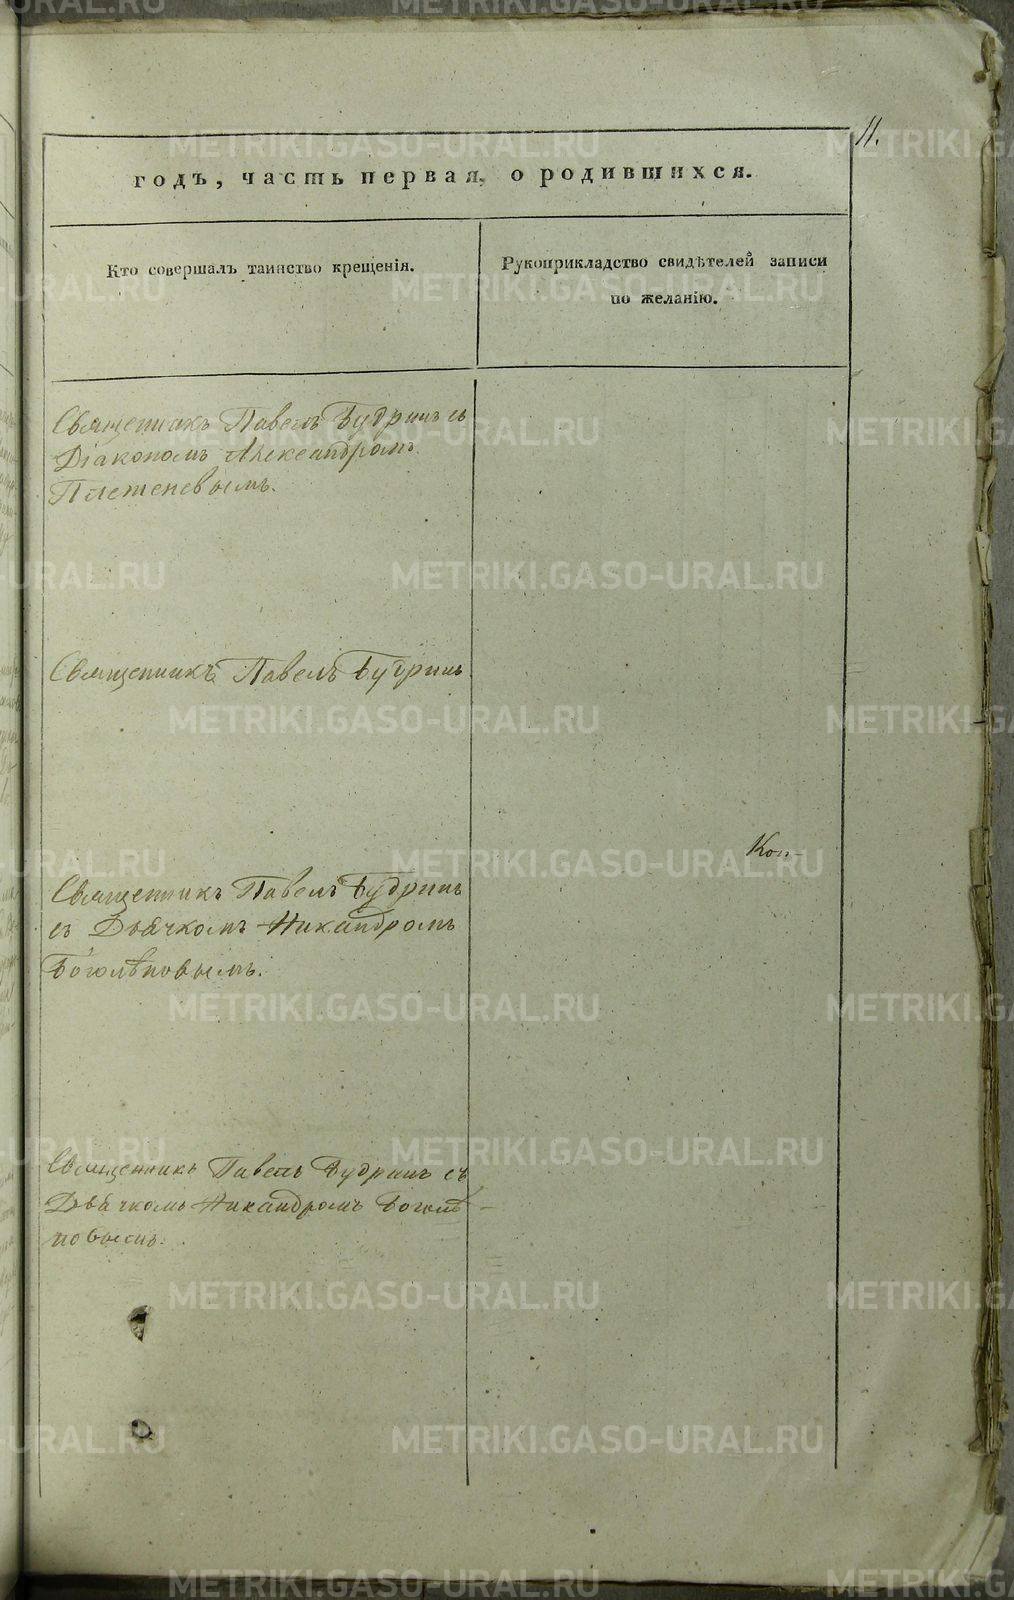 11.
годъ, часть первая, о родившихся.
Кто совершалъ таинство крещенія.
Рукоприкладство свидѣтелей записи
по желанію.
Священникъ Павелъ Будринъ съ
Діакономъ Александромъ
Плетеневымъ.
Священникъ Павелъ Будринъ
Коп-
Священникъ Павелъ Будринъ
съ Дьячкомъ Никандромъ
Боголѣповымъ.
Священникъ Павелъ Будринъ съ
Дьячкомъ Никандромъ Боголѣ-
повымъ.
METRIKI.GASO-URAL.RU